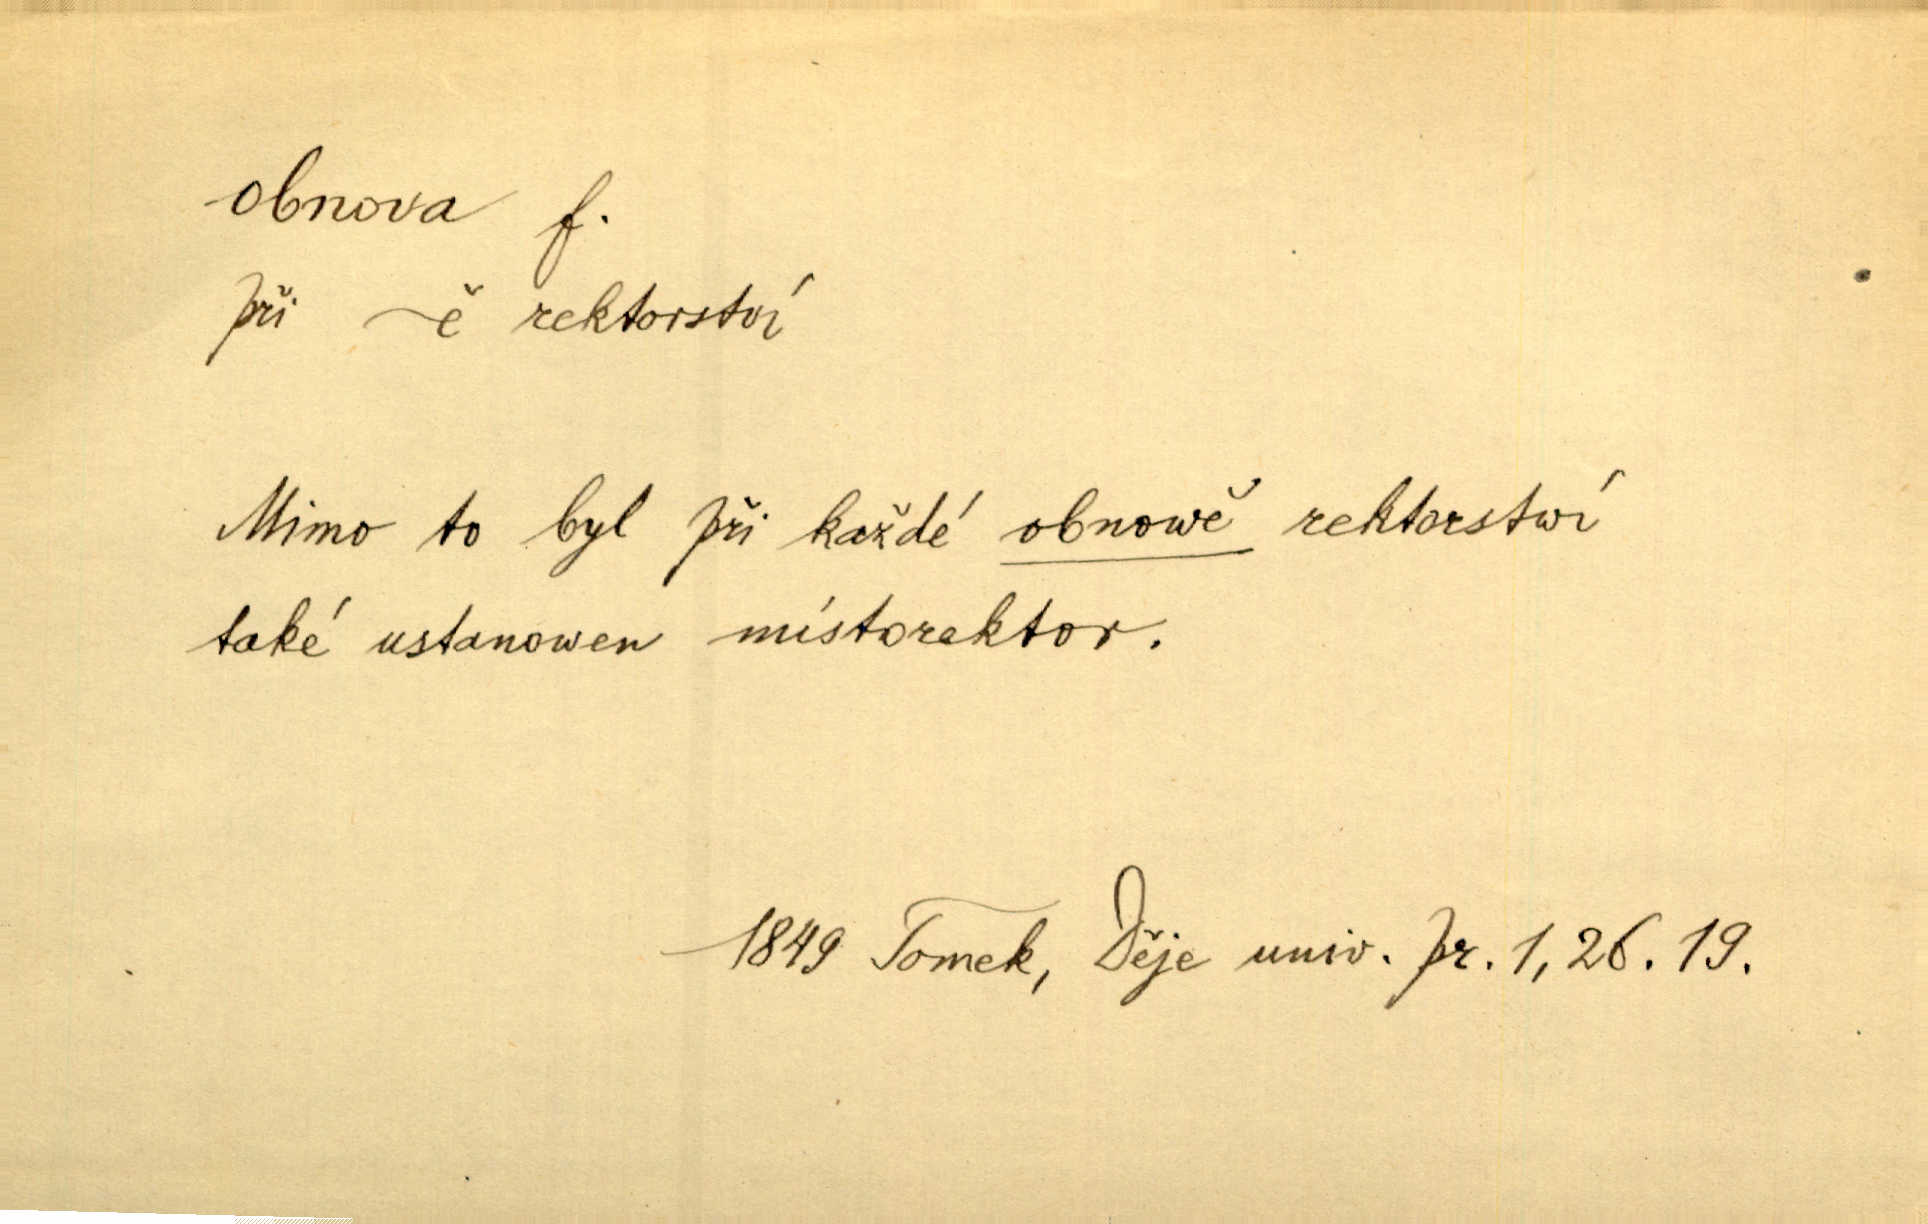 obnova f.
při ~ě rektorství
Mimo to byl při každé obnowě rektorstwí
také ustanowen místorektor.
1849 Tomek, Děje univ. pr. 1, 26. 19.